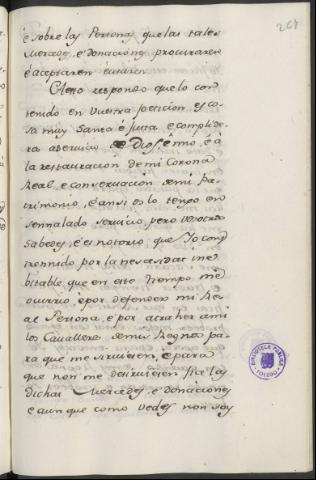 268
é sobre las Personas que las tales
Mercedes, é donaciones procuraren
é aceptaren é usaren.
A esto respondo que lo con
tenido en vuestra peticion es co
sa muy Santa é justa, é complide
ra a servicio de Dios, é mio, é á
la restauracion de mi Corona
Real, é conservacion de mi Pa
trimonio, é ansi os lo tengo en
sennalado servicio, pero vosotros
sabedes, é es notorio, que Yo cons
trennido por la necesidad ine
bitable que en este tiempo me
ocurrio, é por defender mi Re
al Persona, é por atraher a mi
los Cavalleros de mis Regnos pa
ra que me sirviesen, é para
que non me desirviesen fize las
dichas Mercedes, é donaciones
é aunque como vedes non soy
BIBLIOTECA PUBLICA
TOLEDO